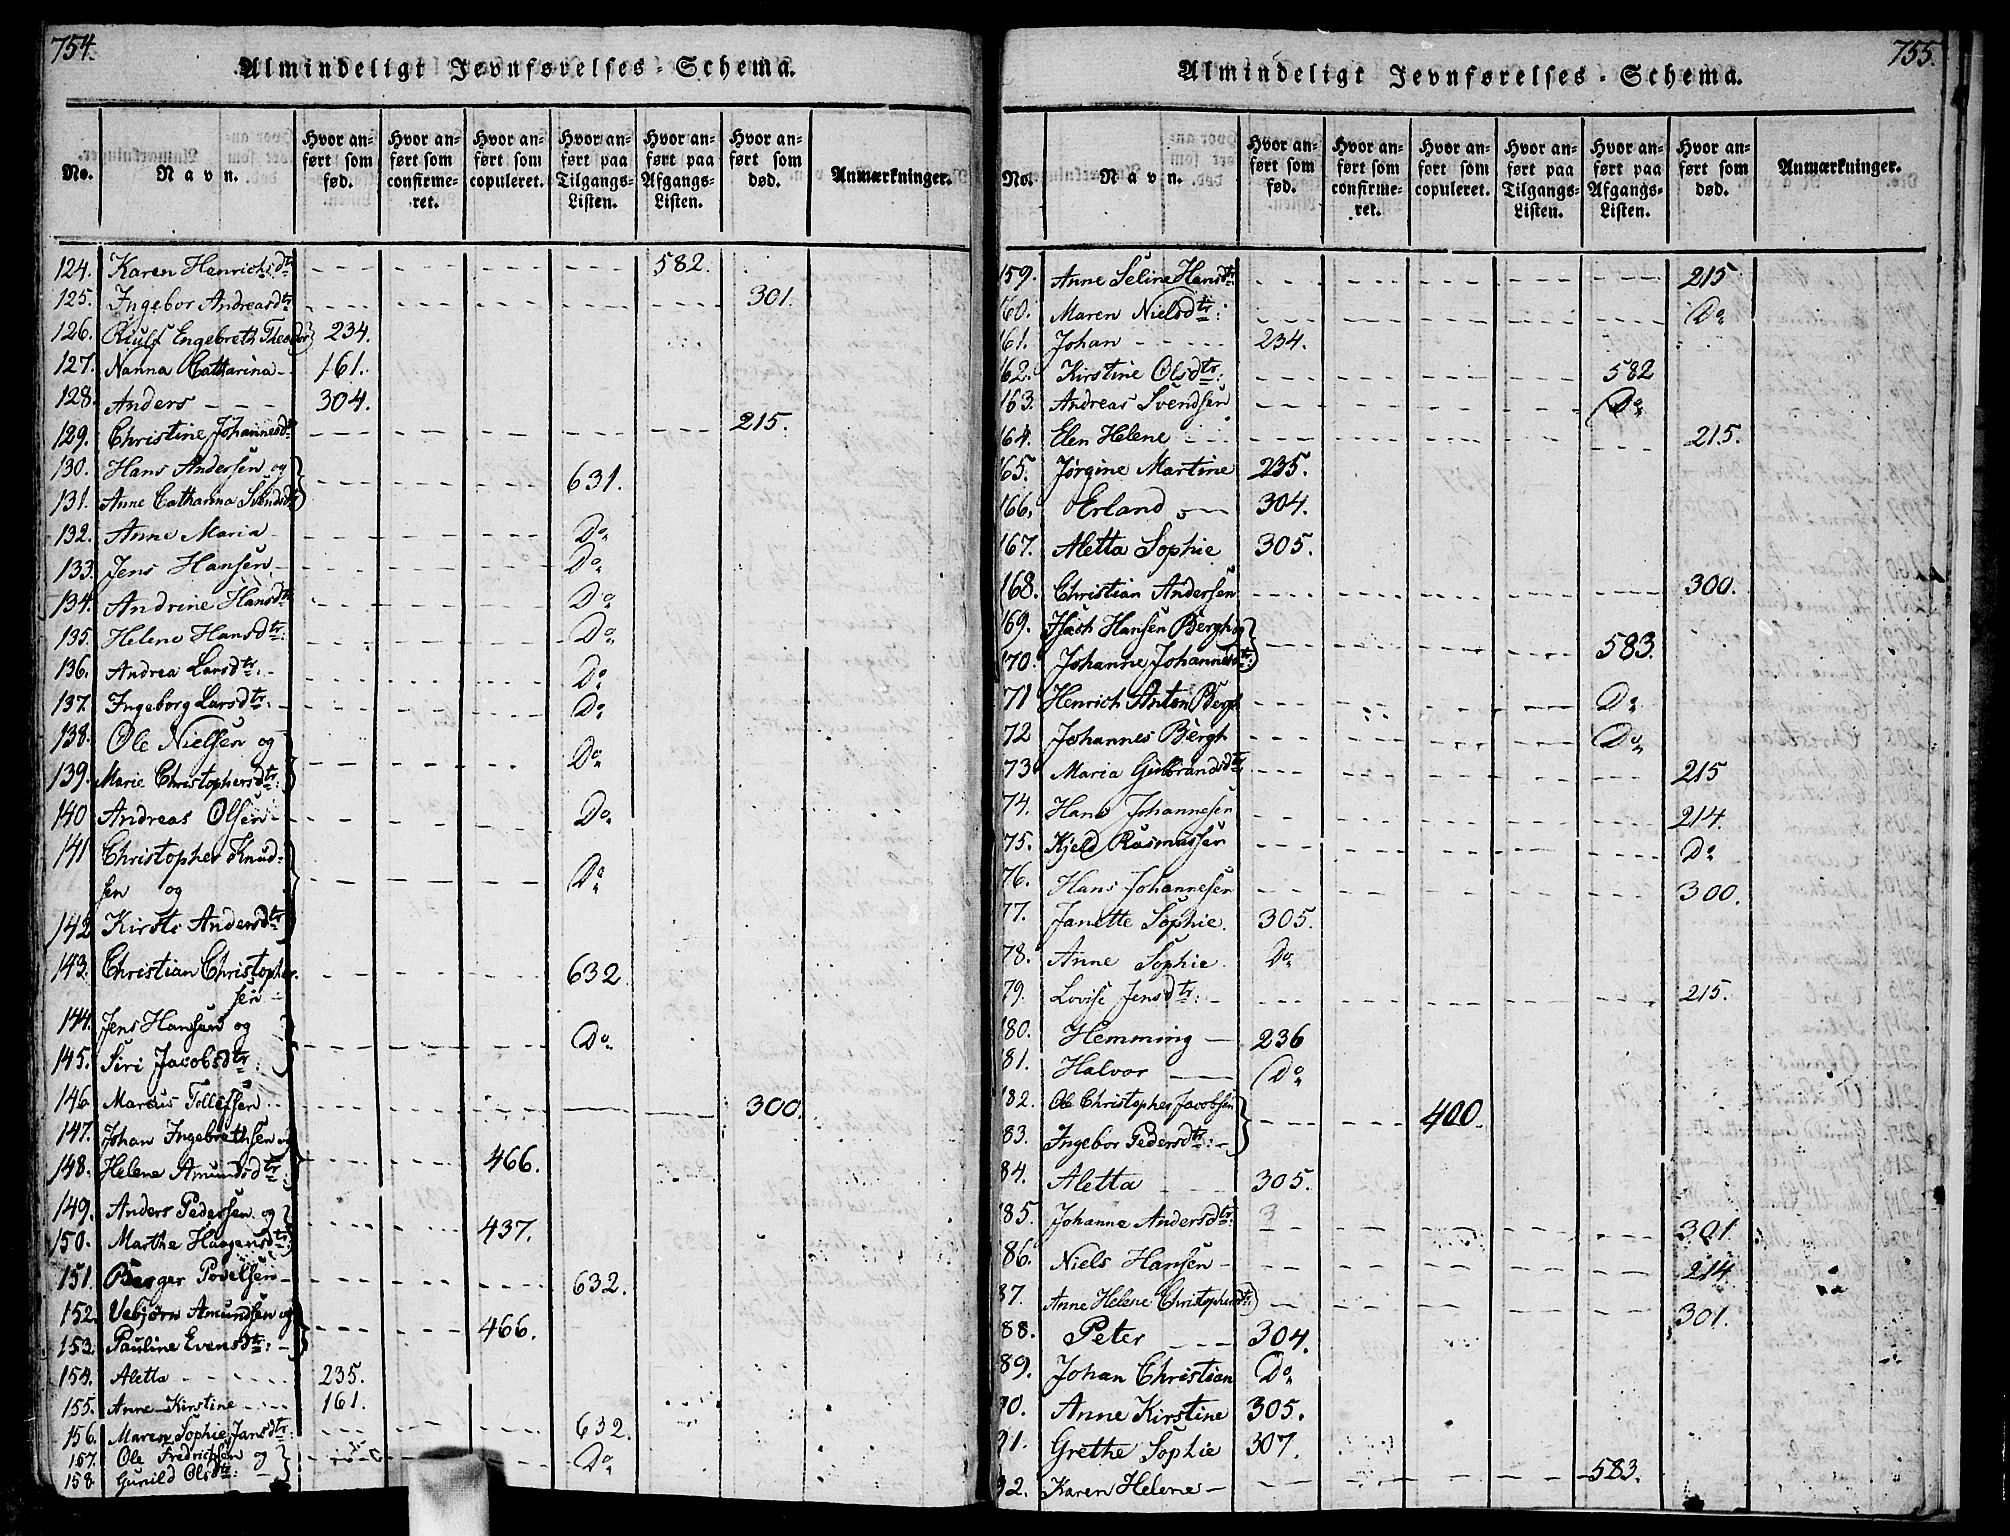 754.
Almindeligt Jevnførelses-Schema.
No.
Navn.
Hvor anført som fød.
Hvor anført som confirmeret.
Hvor anført som copuleret.
Hvor anført paa Tilgangs-Listen.
Hvor anført paa Afgangs-Listen.
Hvor anført som død.
Anmærkninger.
124. Karen Henrichsdtr 582.
125. Ingebor Andreasdtr 301.
126. Engebreth Theodor 234.
127. Nanna Catharina 161.
128. Anders 304.
129. Christine Johannesdr 215.
130. Hans Andersen og
131. Anne Catharina Svendsdtr 631.
132. Anne Maria Do
133. Jens Hansen Do
134. Andrine Hansdtr Do
135. Helene Hansdtr: Do
136. Andrea Larsdtr: Do
137. Ingeborg Larsdtr: Do
138. Ole Nielsen og
139. Marie Christophersdtr: Do
140 Andreas Olsen Do
141 Christopher Knud-
sen og Do
142 Kirsti Andersdtr
143. Christian Christopher-
sen 632
144. Jens Hansen og
145. Siri Jacobsdtr: Do
146 Marcus Tollefsen 300.
147. Johan Ingebrethsen og
148. Helene Amundsdtr: 466.
149. Anders Pedersen og
150. Marthe Haagensdtr: 437.
151. Berger Povelsen 632.
152. Vebjørn Amundsen og
153. Pauline Evensdtr: 466.
154. Aletta 235.
155. Anne Kirstine 161.
156. Maren Sophie Jansdtr: 632.
157. Ole Fredrichsen og
158 Gunild Olsdtr: Do
755.
Almindeligt Jevnførelses-Schema.
No.
Navn.
Hvor anført som fød.
Hvor anført som confirmeret.
Hvor anført som copuleret.
Hvor anført paa Tilgangs-Listen.
Hvor anført paa Afgangs-Listen.
Hvor anført som død.
Anmærkninger.
159. Anne Seline Hansdtr: 215
60. Maren Nielsdtr: Do
61. Johan 234.
62. Kirstine Olsdtr: 582
163. Andreas Svendsen Do
164. Elen Helene 215.
165. Jørgine Martine 235.
166. Erland 304.
167. Aletta Sophie 305.
168. Christian Andersen 300.
169. Isach Hansen Bergh og
170. Johanne Johannesdtr: 583.
71 Henrich Anton Bergh Do
72 Johannes Bergh Do
73 Maria Gulbrandsdtr 215
74. Hans Johannesen 214.
75. Kjeld Rasmussen Do
76. Hans Johannesen 300.
77. Janette Sophie. 305.
78. Anne Sophie Do
79. Lovise Jensdtr: 215.
180. Hemming 236
81. Halvor Do
182. Ole Christopher Jacobsen
83. Ingebor Pedersdtr: 400.
84. Aletta 305.
185. Johanne Andersdtr: 301
86. Niels Hansen 214
87. Anne Helene Christophersdtr 301.
88. Peter 304.
89. Johan Christian Do
90. Anne Kirstine 305.
91. Grethe Sophie 307.
92. Karen Helene 583.